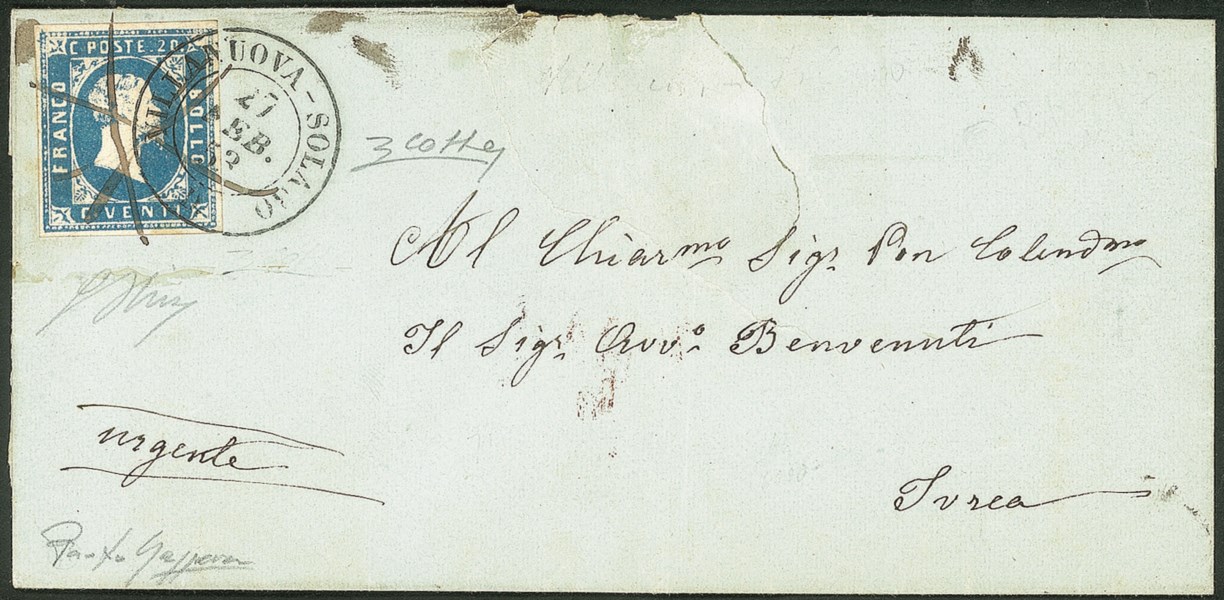 C POSTE. 20
FRANCO
BOLLO
C VENTI
VILLANUOVA-SOLARO
27
FEB.
52
Al Chiarmo Sigr Pon Colendmo
Il Sigr Avvo Benvenuti
urgente
Ivrea